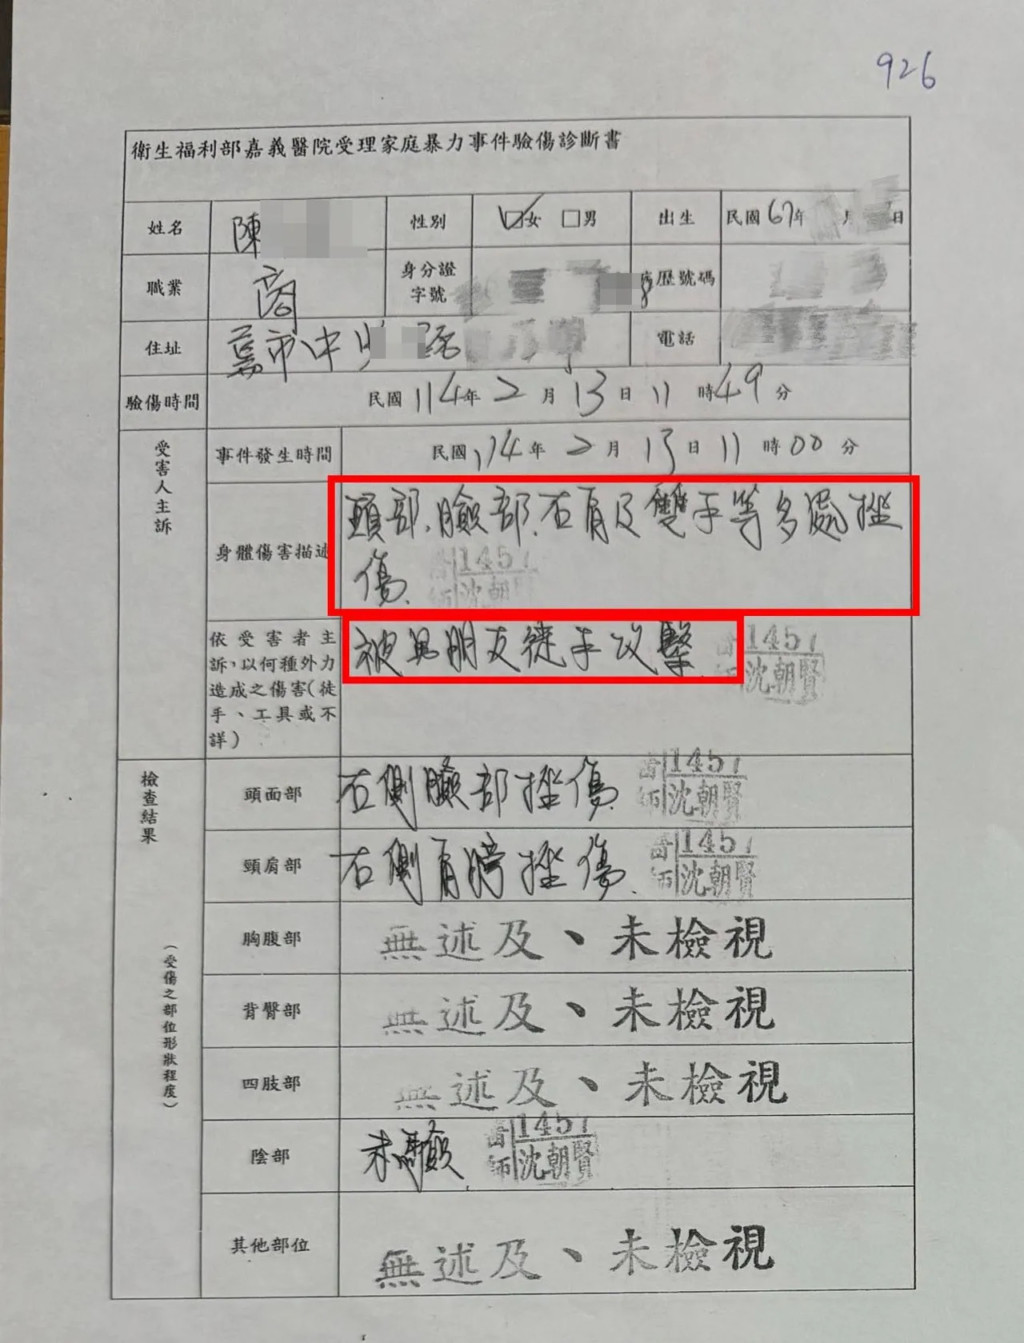 926
衛生福利部嘉義醫院受理家庭暴力事件驗傷診斷書
姓名 陳 性別 ☑女 □男 出生 民國67年 月 日
職業 商 身分證字號 病歷號碼
住址 市中 電話
驗傷時間 民國114年2月13日11時49分
受害人主訴
事件發生時間 民國114年2月13日11時00分
身體傷害描述 頭部、臉部、右肩及雙手等多處挫
傷.
醫師 1457 沈朝賢
依受害者主
訴,以何種外力
造成之傷害(徒
手、工具或不
詳)
被男朋友徒手攻擊.
醫師 1457 沈朝賢
檢查結果
(受傷之部位形狀程度)
頭面部 右側臉部挫傷 醫師 1457 沈朝賢
頸肩部 右側肩膀挫傷. 醫師 1457 沈朝賢
胸腹部 無述及、未檢視
背臀部 無述及、未檢視
四肢部 無述及、未檢視
陰部 未驗 醫師 1457 沈朝賢
其他部位 無述及、未檢視